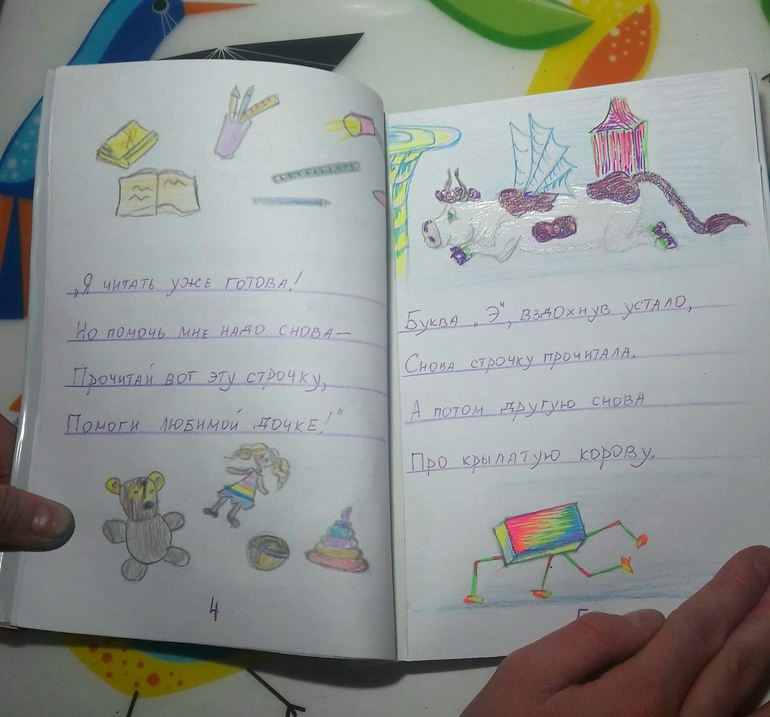 „Я читать уже готова!
Но помочь мне надо снова—
Прочитай вот эту строчку,
Помоги любимой дочке!"
4
Буква „Э", вздохнув устало,
Снова строчку прочитала.
А потом другую снова
Про крылатую корову.